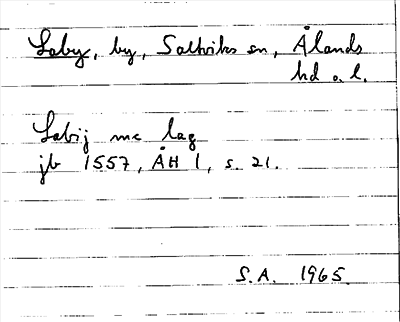 Laby, by, Saltviks sn, Ålands
hd o. l.
Labij mc lag
jb 1557, ÅH 1, s. 21.
S.A. 1965.